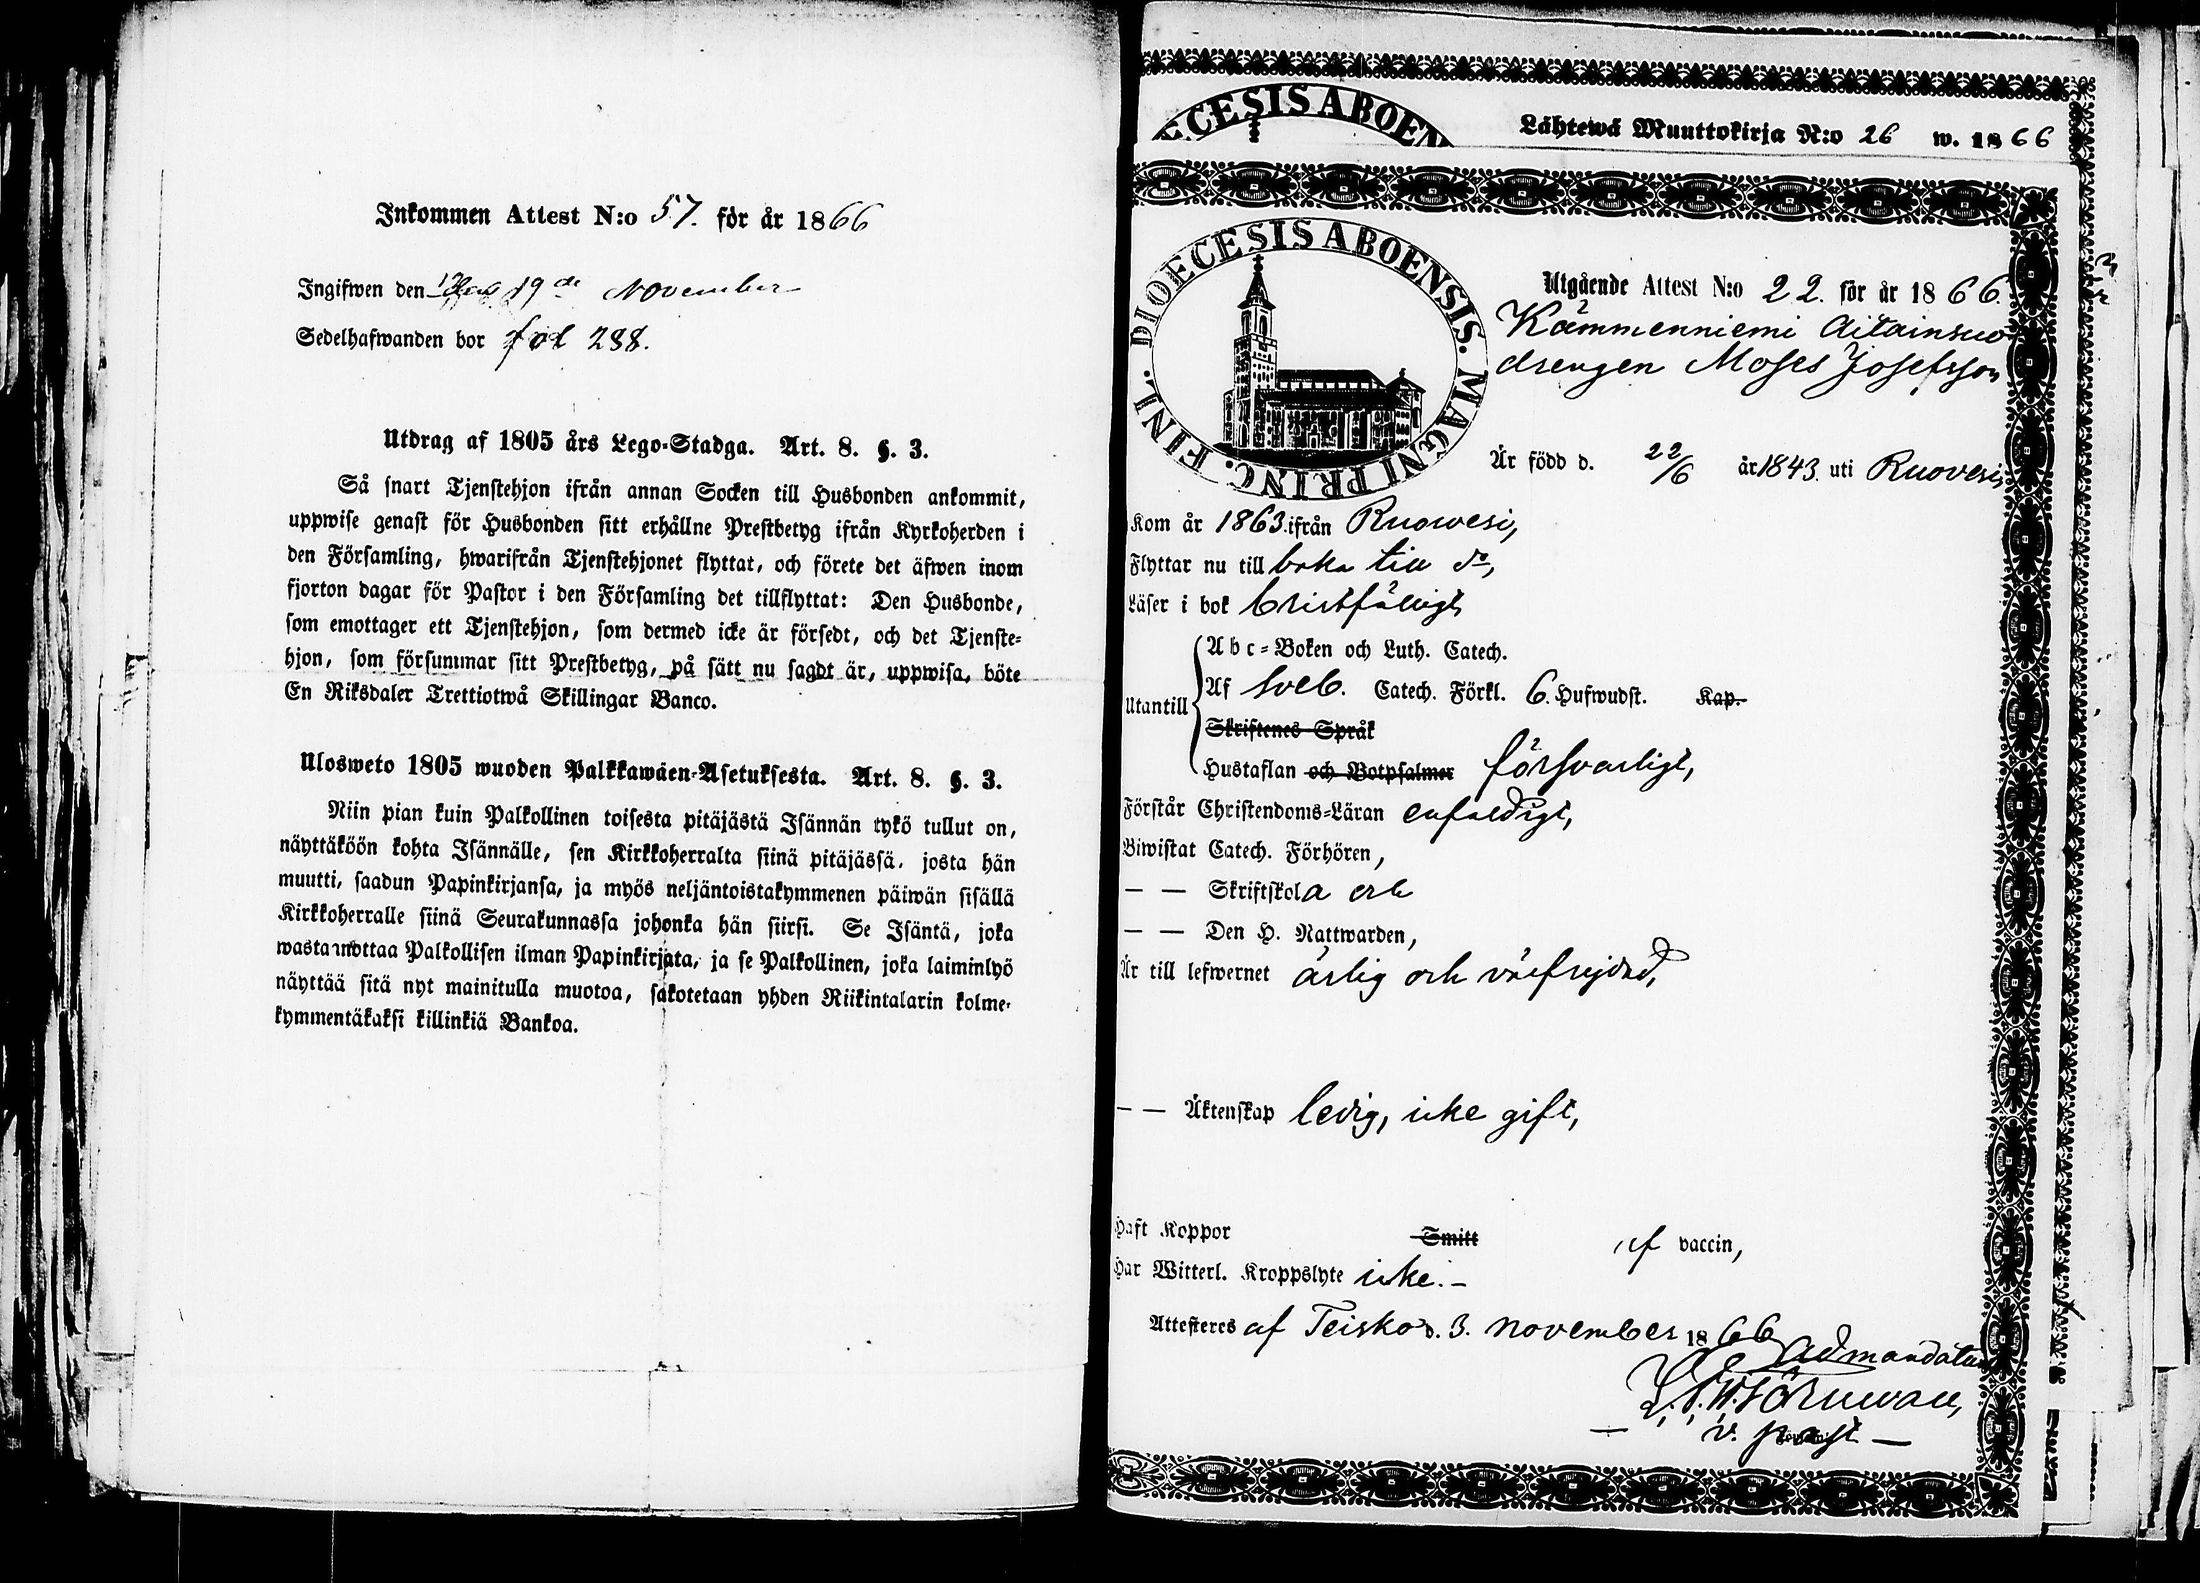 Inkommen Attest N:o 57. för år 1866
Ingifwen den 19de November
Sedelhafwanden bor fol 288.
Utdrag af 1805 års Lego-Stadga. Art. 8. §. 3.
Så snart Tjenstehjon ifrån annan Socken till Husbonden ankommit,
uppwise genast för Husbonden sitt erhållne Prestbetyg ifrån Kyrkoherden i
den Församling, hwarifrån Tjenstehjonet flyttat, och förete det äfwen inom
fjorton dagar för Pastor i den Församling det tillflyttat: Den Husbonde,
som emottager ett Tjenstehjon, som dermed icke är försedt, och det Tjenste-
hjon, som försummar sitt Prestbetyg, på sätt nu sagdt är, uppwisa, böte
En Riksdaler Trettiotwå Skillingar Banco.
Ulosweto 1805 wuoden Palkkawäen-Asetuksesta. Art. 8. §. 3.
Niin pian kuin Palkollinen toisesta pitäjästä Isännän tykö tullut on,
näyttäköön kohta Isännälle, sen Kirkkoherralta siinä pitäjässä, josta hän
muutti, saadun Papinkirjansa, ja myös neljäntoistakymmenen päiwän sisällä
Kirkkoherralle siinä Seurakunnassa johonka hän siirsi. Se Isäntä, joka
wastaanottaa Palkollisen ilman Papinkirjata, ja se Palkollinen, joka laiminlyö
näyttää sitä nyt mainitulla muotoa, sakotetaan yhden Riikintalarin kolme-
kymmentäkaksi killinkiä Bankoa.
ECESIS ABOEN
Lähtewä Muuttokirja N:o 26 w. 1866
DIOECESIS ABOENSIS. MAGNI PRINC. FINL.
Utgående Attest N:o 22. för år 1866.
Kämmenniemi Aitainsuo
drengen Moses Josefsson
Är född d. 22/6 år 1843. uti Ruovesi,
Kom år 1863. ifrån Ruowesi,
Flyttar nu till baka till do,
Läser i bok bristfälligt,
Abc-Boken och Luth. Catech.
Utantill
Af Sveb. Catech. Förkl. 6. Hufwudst. Kap.
Skriftenes Språk
Hustaflan och Botpsalmer försvarligt,
Förstår Christendoms-Läran enfaldigt,
Biwistat Catech. Förhören,
— — Skriftskola och
— — Den H. Nattwarden,
Är till lefwernet ärlig och välfrejdad,
— — Äktenskap ledig, icke gift,
Haft Koppor Smitt af vaccin,
Har Witterl. Kroppslyte icke. —
Attesteres af Teisko d. 3. november 1866
Ad mandatum
v. past —